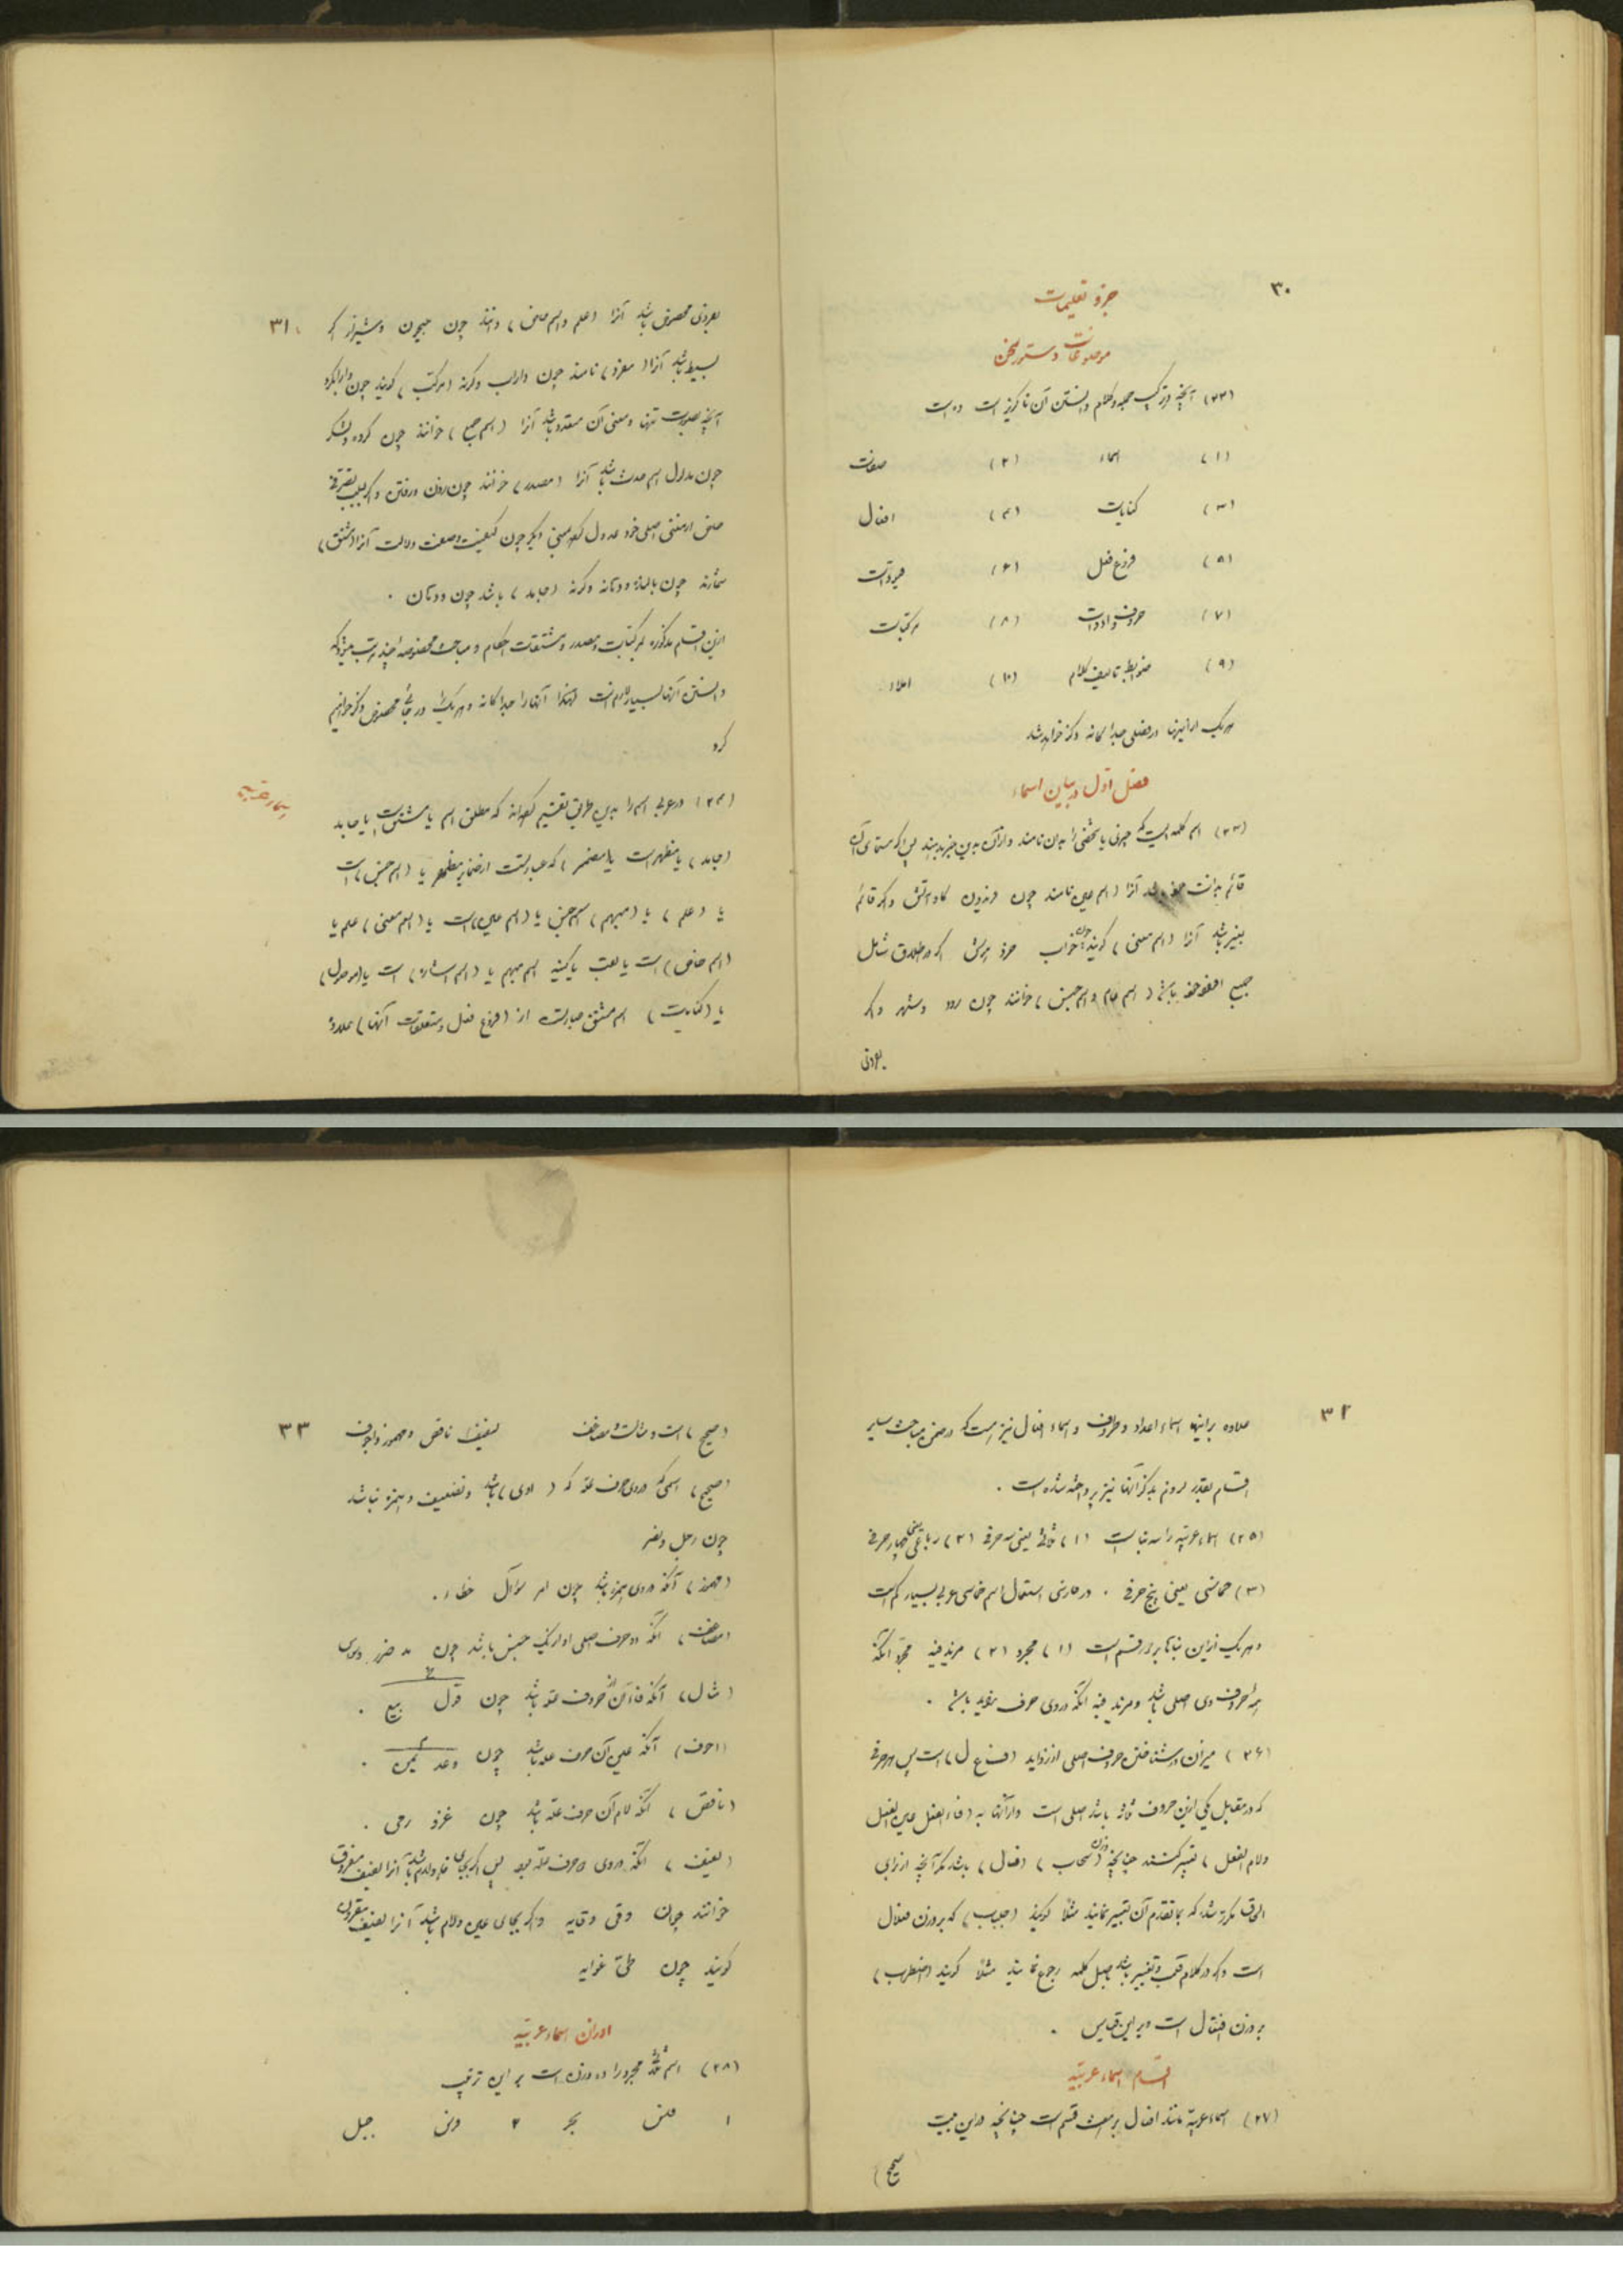 ۳۰
جزو تعلیمات
موضوعات دستور سخن
(۲۲) آنچه در ترکیب جمله و کلام دانستن آن ناگزیر است ده است
(۱) اسماء (۲) صفات
(۳) کنایات (۴) افعال
(۵) فروع فعل (۶)
(۷) حروف و ادوات (۸) مرکبات
(۹) ضوابط تالیف کلام (۱۰) املاء
هریک از اینها در فصلی جداگانه ذکر خواهد شد
فصل اول در بیان اسماء
(۲۳) اسم کلمه ایست که چیزی یا شخصی را بدان نامند و از آن بدین چیز پی برند پس اگر مسمای آن
قائم بذات آنرا (اسم عین) نامند چون فریدون کاوه آتش و اگر قائم
بغیر باشد آنرا (اسم معنی) گویند چون خواب خرد هوش اگر در اطلاق شامل
جمیع افراد خود باشد (اسم عام و اسم جنس) خوانند چون رود و شهر و اگر
بفردی
۳۱
بفردی مخصوص باشد آنرا (علم و اسم خاص) دانند چون جیحون و شیراز اگر
بسیط باشد آنرا (مفرد) نامند چون داراب وگرنه (مرکب) گویند چون دارابگرد
آنچه بصورت تنها و معنی آن متعدد باشد آنرا (اسم جمع) خوانند چون گروه و لشکر
چون مدلول اسم حدث باشد آنرا (مصدر) خوانند چون زدن و رفتن و اگر بسبب تصرفی
خاص از معنی اصلی خود عدول کرده بمعنی دیگر چون کیفیت و صفت دلالت آنرا (مشتق)
شمارند چون باغبان و دوستانه وگرنه (جامد) باشد چون دوستان .
ازین اقسام مذکوره مرکبات و مصدر و مشتقات احکام و مباحث مخصوصه چند مترتب میشود که
دانستن آنها بسیار لازم است لهذا آنها را جداگانه و هریک را در جائی مخصوص ذکر خواهیم
کرد
اسماء عربیه
(۲۴) در عربی اسم را بدین طریق تقسیم کرده‌اند که مطلق اسم یا مشتق است یا جامد
(جامد) یا مظهر است یا (مضمر) که عبارتست از ضمایر مظهر یا (اسم جنس) است
یا (علم) یا (مبهم) اسم جنس یا (اسم عین) است یا (اسم معنی) علم یا
(اسم خاص) است یا لقب یا کنیه اسم مبهم یا (اسم اشاره) است یا (موصول)
یا (کنایت) اسم مشتق عبارتست از (فروع فعل و متعلقات آنها) علاوه
۳۲
علاوه بر اینها اسماء اعداد و ظروف و اسماء افعال نیز هست که در ضمن مباحث سایر
اقسام بقدر لزوم بذکر آنها نیز پرداخته شده است .
(۲۵) اسماء عربیه را سه بنا است (۱) ثلاثی یعنی سه حرفی (۲) رباعی یعنی چهار حرفی
(۳) خماسی یعنی پنج حرفی . در فارسی استعمال اسم خماسی عربی بسیار کم است
و هریک ازین بناها بر دو قسم است (۱) مجرد (۲) مزید فیه مجرد آنکه
همه حروف وی اصلی باشد و مزید فیه آنکه در وی حرف زواید باشد .
(۲۶) میزان در شناختن حروف اصلی از زواید (ف ع ل) است پس هر حرفی
که در مقابل یکی ازین حروف ثلاثه باشد اصلی است و از آنها به (فاء الفعل عین الفعل
و لام الفعل) تعبیر کنند چنانچه وزن (سحاب) (فعال) باشد مگر آنچه از برای
الحاق مکرر شد که بما تقدم آن تعبیر نمایند مثلا گویند (جلباب) که بر وزن فعلال
است و اگر در کلام قلب و تغییر باشد باصل کلمه رجوع نمایند مثلا گویند (اضطراب)
بر وزن افتعال است و بر این قیاس .
اقسام اسماء عربیه
(۲۷) اسماء عربیه مانند افعال بر هفت قسم است چنانچه درین بیت
صحیح)
۳۳
(صحیح) است و مثالست و مضاعف لفیف و ناقص و مهموز و اجوف
(صحیح) اسمی که در وی حرف عله که (اوی) باشد و تضعیف و همزه نباشد
چون رجل و نصر
(مهموز) آنکه در وی همزه باشد چون امر سؤال خطاء .
(مضاعف) آنکه دو حرف اصلی او از یک جنس باشد چون مد ضرر وسواس
(مثال) آنکه فاء آن از حروف عله باشد چون قول بیع .
(اجوف) آنکه عین آن حرف عله باشد چون وعد یمین .
(ناقص) آنکه لام آن حرف عله باشد چون غزو رمی .
(لفیف) آنکه در وی دو حرف عله بود پس اگر بجای فاء و لام باشد آنرا لفیف مفروق
خوانند چون وقی وقایه و اگر بجای عین و لام باشد آنرا لفیف مقرون
گویند چون طی غوایه
اوزان اسماء عربیه
(۲۸) اسم ثلاثی مجرد را ده وزنست بر این ترتیب
۱ فلس بحر ۲ فرس جبل